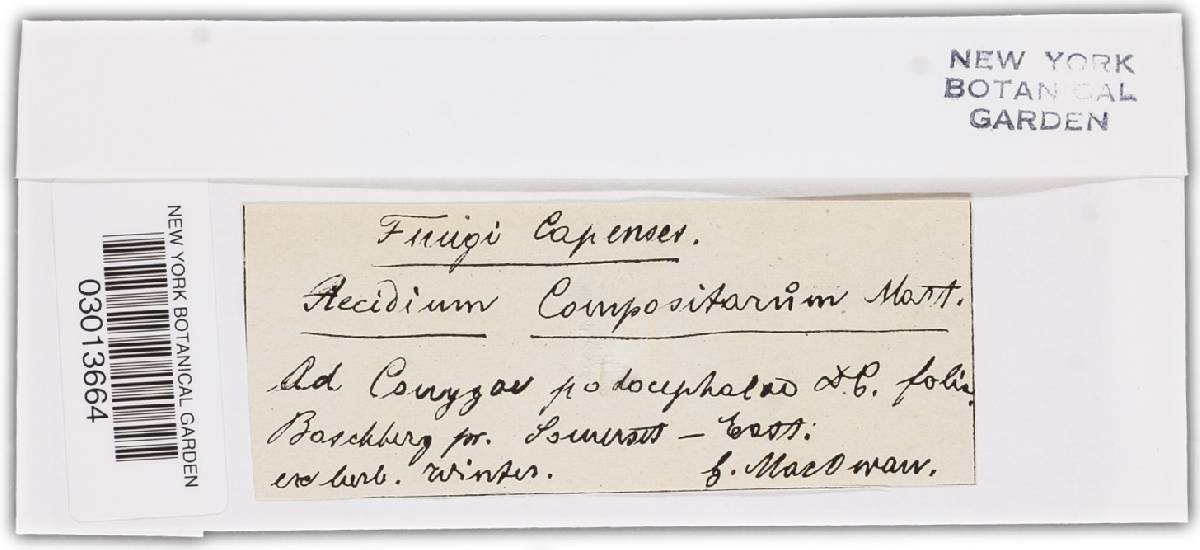 NEW YORK
BOTANICAL
GARDEN
NEW YORK BOTANICAL GARDEN
03013664
Fungi Capenses.
Aecidium Compositarum Mart.
Ad Conyzae podocephalae D.C. folia.
Boschberg pr. Somerset – East.
ex herb. Winter. MacOwan.